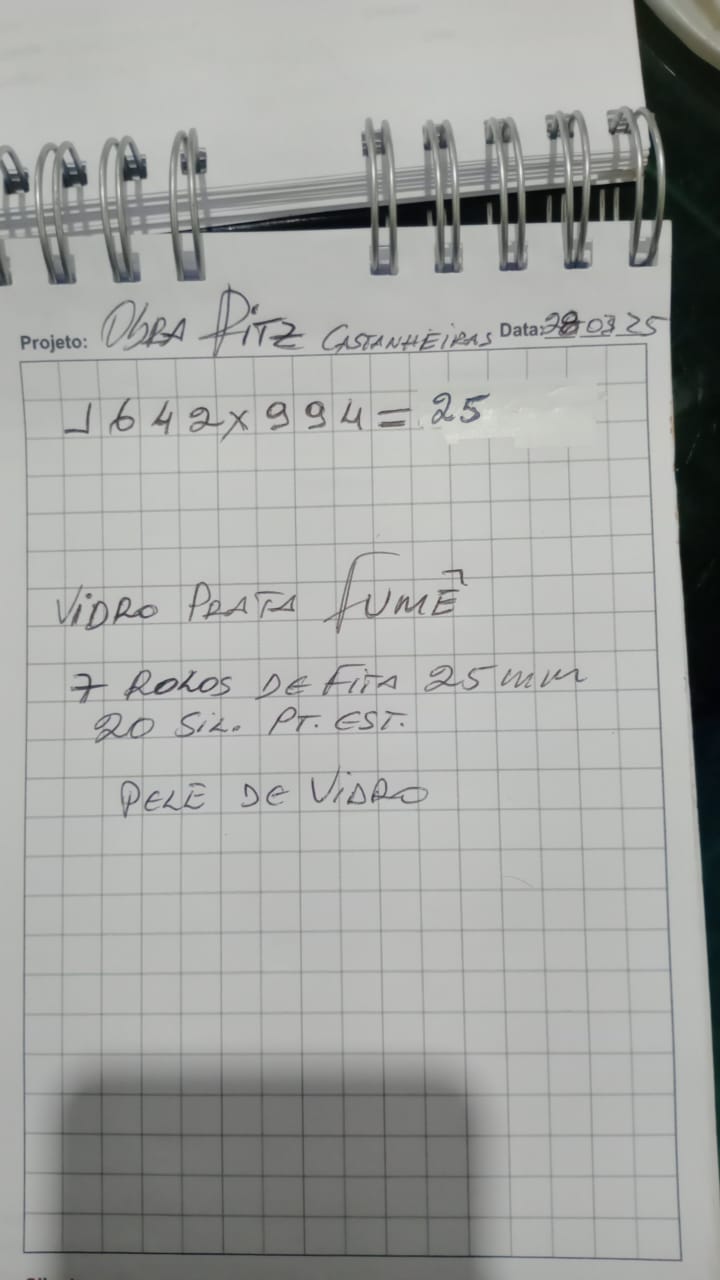 Projeto: OBRA RITZ CASTANHEIRAS Data: 28 03 25
1642x994=25
VIDRO PRATA FUMÊ
7 ROLOS DE FITA 25mm
20 SIL. PT. EST.
PELE DE VIDRO